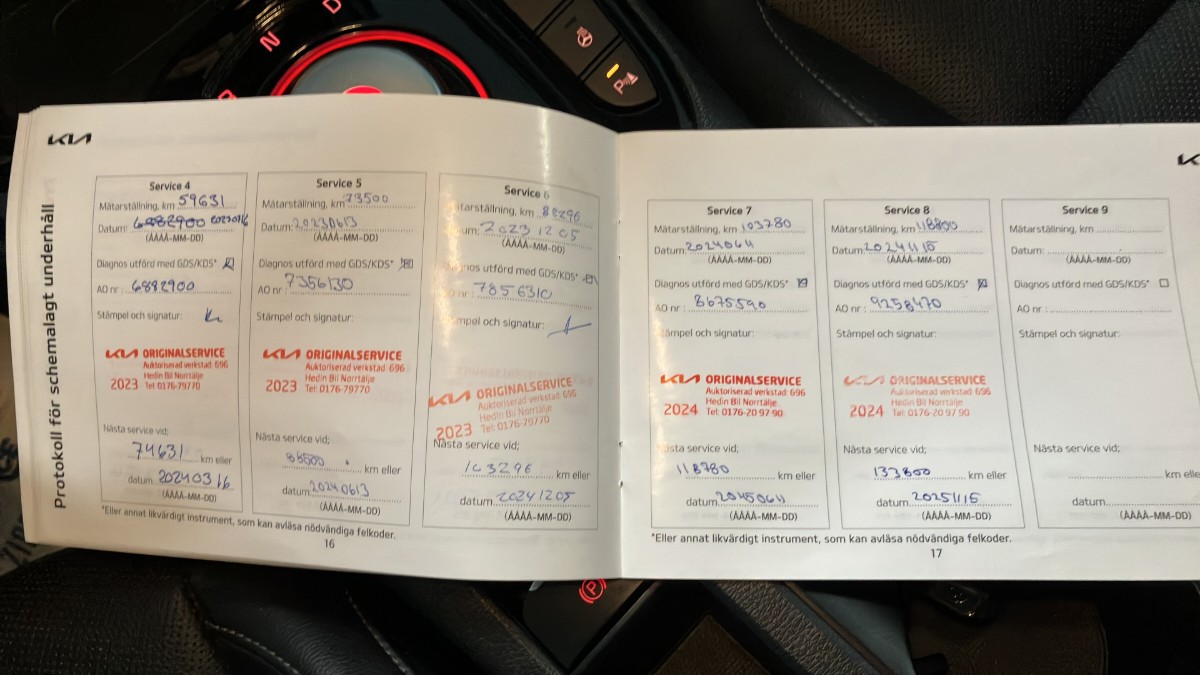 N
D
KIA
Protokoll för schemalagt underhåll
Service 4
Mätarställning, km 59631
Datum:
(ÅÅÅÅ-MM-DD)
Diagnos utförd med GDS/KDS*
AO nr : 6882900
Stämpel och signatur:
KIA ORIGINALSERVICE
Auktoriserad verkstad: 696
Hedin Bil Norrtälje
2023 Tel: 0176-79770
Nästa service vid;
74631 km eller
datum 20240316
(ÅÅÅÅ-MM-DD)
Service 5
Mätarställning, km 73500
Datum: 20230613
(ÅÅÅÅ-MM-DD)
Diagnos utförd med GDS/KDS*
AO nr : 7356130
Stämpel och signatur:
KIA ORIGINALSERVICE
Auktoriserad verkstad: 696
Hedin Bil Norrtälje
2023 Tel: 0176-79770
Nästa service vid;
88500 km eller
datum 20240613
(ÅÅÅÅ-MM-DD)
Service 6
Mätarställning, km 88296
tum: 20231205
(ÅÅÅÅ-MM-DD)
agnos utförd med GDS/KDS*
nr : 7856310
mpel och signatur:
KIA ORIGINALSERVICE
Auktoriserad verkstad: 696
Hedin Bil Norrtälje
2023 Tel: 0176-79770
Nästa service vid;
103296 km eller
datum 20241205
(ÅÅÅÅ-MM-DD)
*Eller annat likvärdigt instrument, som kan avläsa nödvändiga felkoder.
16
Service 7
Mätarställning, km 103780
Datum: 2024064
(ÅÅÅÅ-MM-DD)
Diagnos utförd med GDS/KDS*
AO nr : 8675590
Stämpel och signatur:
KIA ORIGINALSERVICE
Auktoriserad verkstad: 696
Hedin Bil Norrtälje
2024 Tel: 0176-20 97 90
Nästa service vid;
118780 km eller
datum
(ÅÅÅÅ-MM-DD)
Service 8
Mätarställning, km 118800
Datum: 20241115
(ÅÅÅÅ-MM-DD)
Diagnos utförd med GDS/KDS*
AO nr : 9258470
Stämpel och signatur:
KIA ORIGINALSERVICE
Auktoriserad verkstad: 696
Hedin Bil Norrtälje
2024 Tel: 0176-20 97 90
Nästa service vid;
133800 km eller
datum 20251115
(ÅÅÅÅ-MM-DD)
Service 9
Mätarställning, km
Datum:
(ÅÅÅÅ-MM-DD)
Diagnos utförd med GDS/KDS*
AO nr :
Stämpel och signatur:
Nästa service vid;
km elle
datum
(ÅÅÅÅ-MM-DD)
*Eller annat likvärdigt instrument, som kan avläsa nödvändiga felkoder.
17